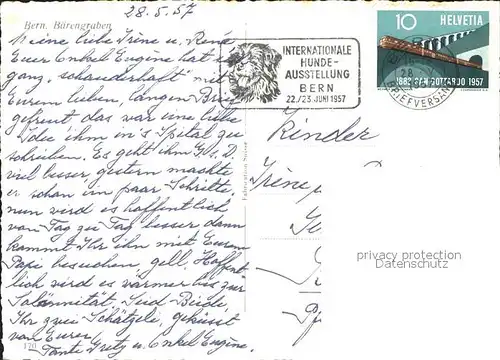 28.5.57
Bern. Bärengraben
Meine liebe Irène u. René
Euer Onkel Eugène hat sich
ganz „schauderhaft" mit
Eurem lieben, langen Brief
gefreut das war eine liebe
Idee ihm in's Spital zu
schreiben. Es geht ihm G.s.D.
viel besser, gestern machte
er schon ein paar Schritte,
nun wird es hoffentlich
von Tag zu Tag besser dann
kommt Ihr ihn mit Eurem
Papi besuchen, gell. Hoffent-
lich wird es wärmer bis zur
Solännität. Seid Beide,
Ihr zwei Schätzeli, geküsst
von Eurer
Tante Gretz u. Onkel Eugène.
170
Fabrication Suisse
INTERNATIONALE
HUNDE-
AUSSTELLUNG
BERN
22./23. JUNI 1957
10 HELVETIA
1882 SAN GOTTARDO 1957
BRIEFVERSAND
Kinder
Irène
privacy protection
Datenschutz